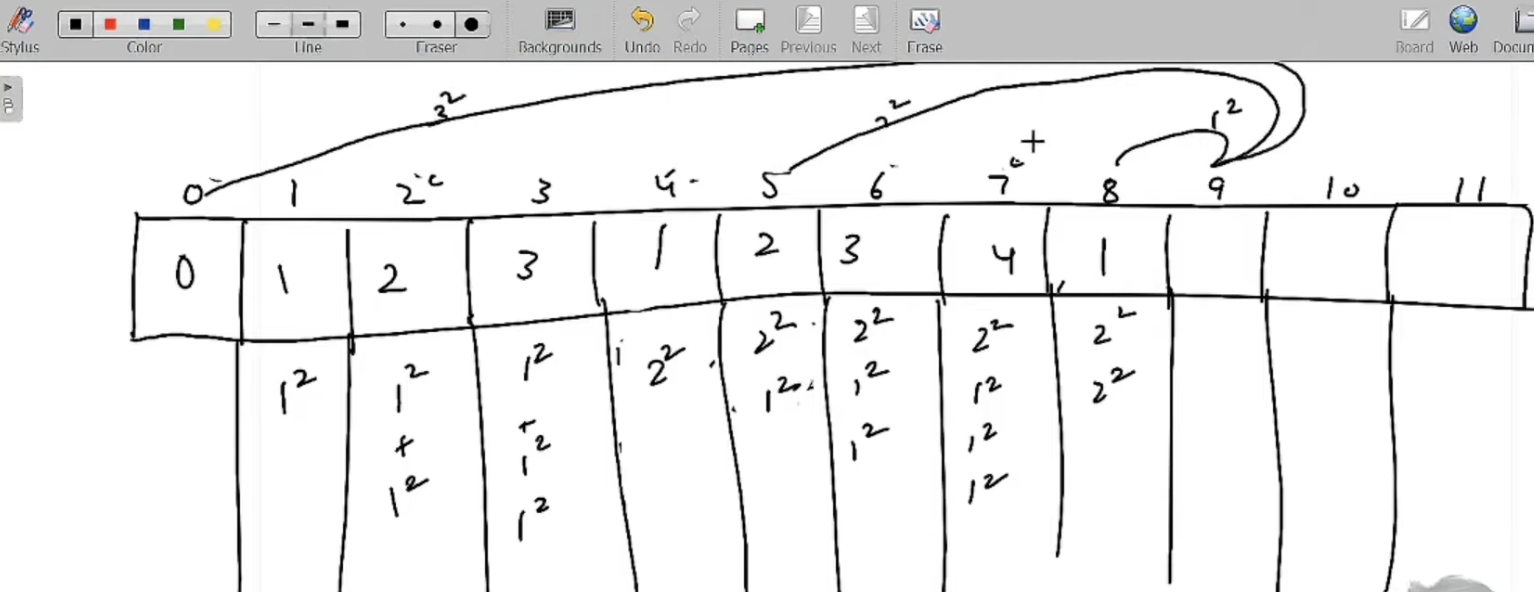 Stylus Color Line Eraser Backgrounds Undo Redo Pages Previous Next Erase Board Web
3² 2² 1²
+
0 1 2 3 4 5 6 7 8 9 10 11
0 1 2 3 1 2 3 4 1
1² 1² 1² 2² 2² 2² 2² 2²
+ + 1² 1² 1² 2²
1² 1² 1² 1²
1² 1²